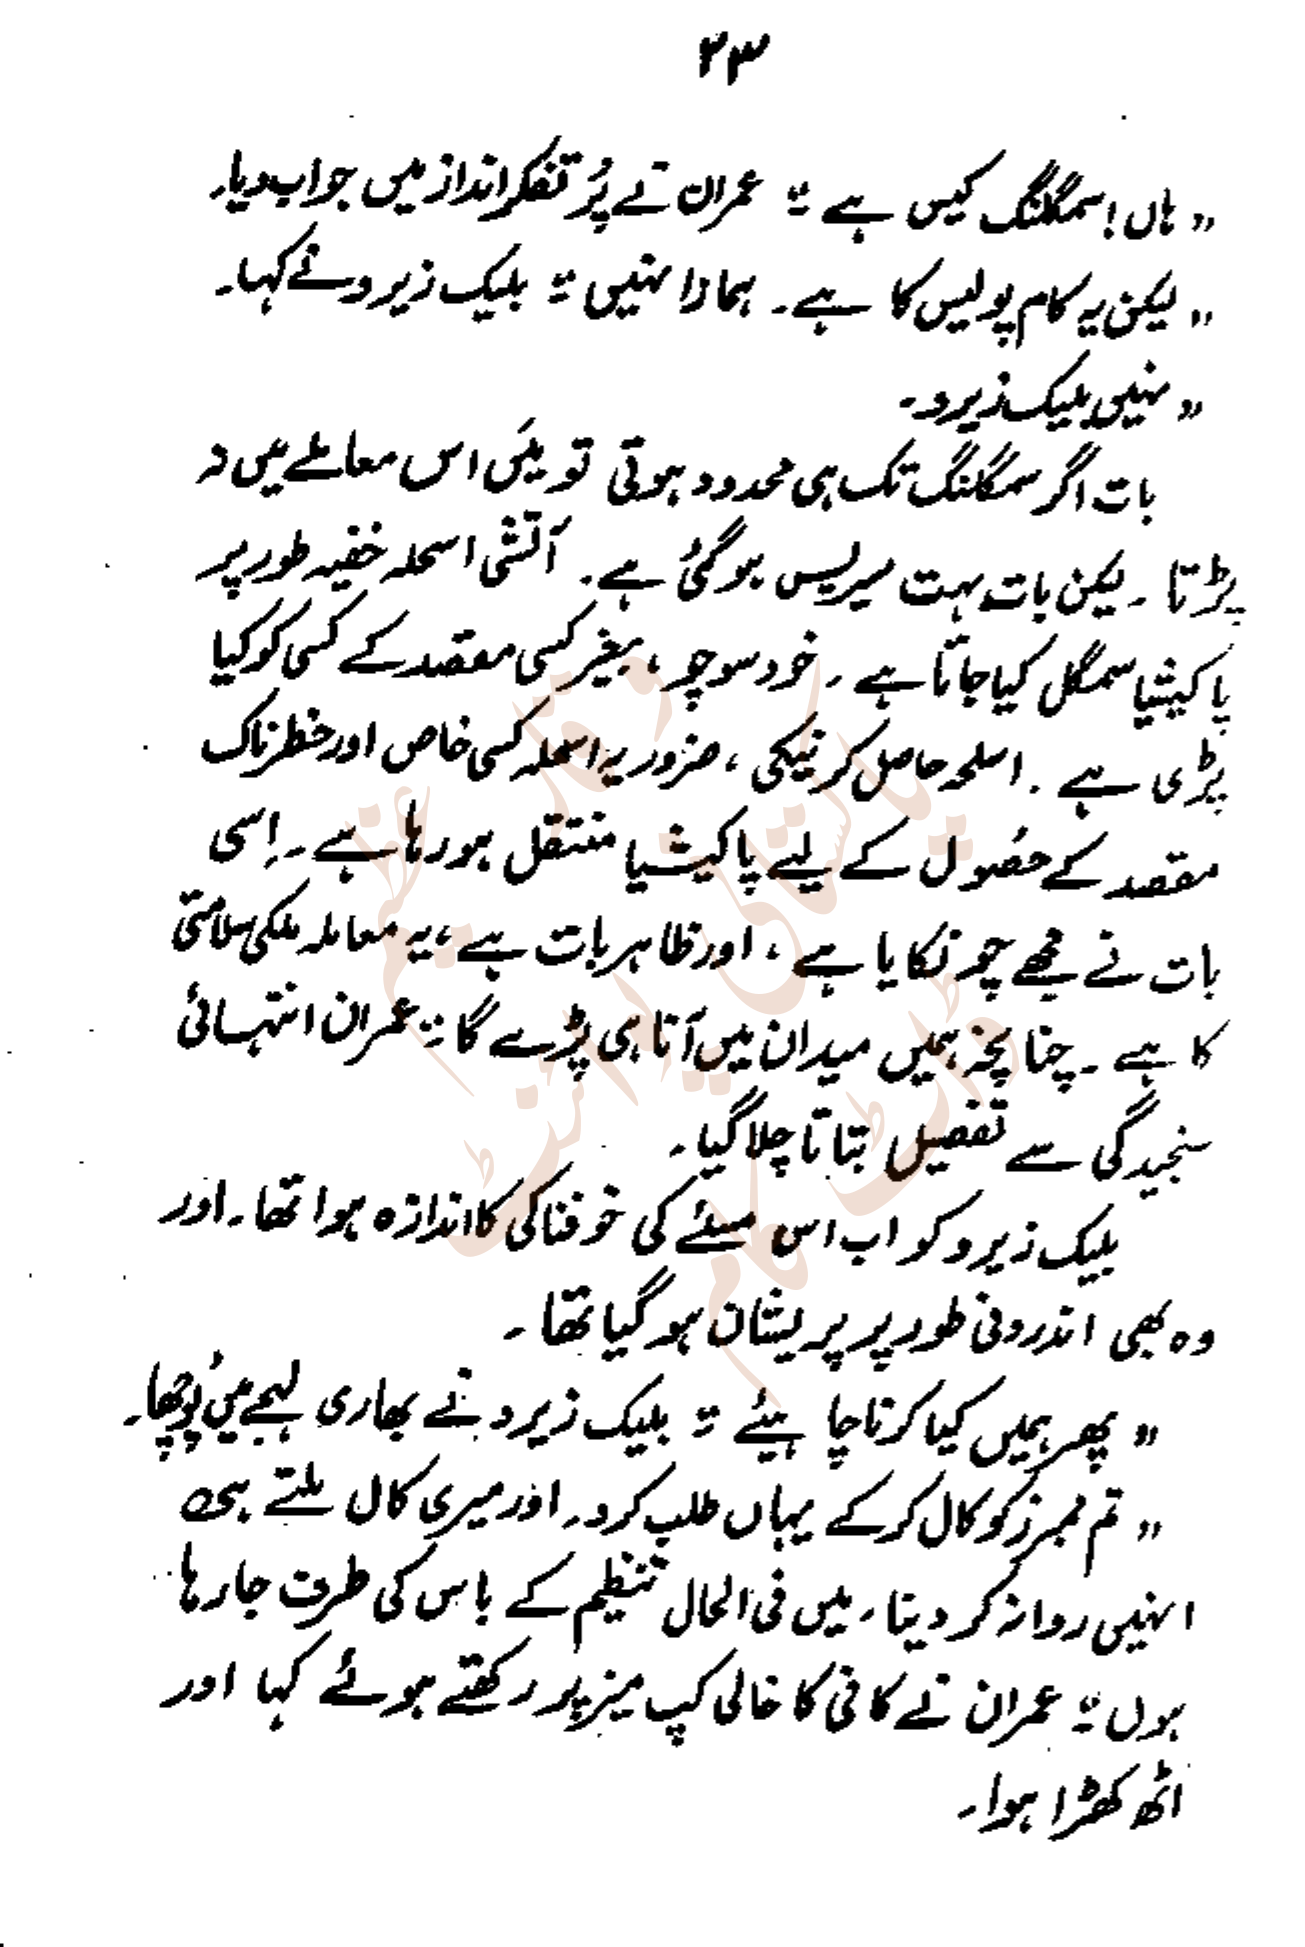 ۲۳
"ہاں! سمگلنگ کیس ہے" عمران نے پُر تفکر انداز میں جواب دیا۔
"لیکن یہ کام پولیس کا ہے۔ ہمارا نہیں" بلیک زیرو نے کہا۔
"نہیں بلیک زیرو۔
بات اگر سمگلنگ تک ہی محدود ہوتی تو میَں اس معاملے میں نہ
پڑتا۔ لیکن بات بہت سیریس ہو گئی ہے۔ آتشی اسلحہ خفیہ طور پر
پاکیشیا سمگل کیا جاتا ہے۔ خود سوچو، بغیر کسی مقصد کے کسی کو کیا
پڑی ہے۔ اسلحہ حاصل کرنیکی، ضرور یہ اسلحہ کسی خاص اور خطرناک
مقصد کے حصُول کے لیے پاکیشیا منتقل ہو رہا ہے۔ اِسی
بات نے مجھے چونکایا ہے، اور ظاہر بات ہے، یہ معاملہ ملکی سلامتی
کا ہے۔ چنانچہ ہمیں میدان میں آنا ہی پڑے گا" عمران انتہائی
سنجیدگی سے تفصیل بتاتا چلا گیا۔
بلیک زیرو کو اب اس مسئلے کی خوفناکی کا اندازہ ہوا تھا۔ اور
وہ بھی اندرونی طور پر پریشان ہو گیا تھا۔
"پھر ہمیں کیا کرنا چاہیئے" بلیک زیرو نے بھاری لہجے میں پُوچھا۔
"تم ممبرز کو کال کر کے یہاں طلب کرو۔ اور میری کال ملتے ہی
انہیں روانہ کر دینا۔ میں فی الحال تنظیم کے باس کی طرف جا رہا
ہوں" عمران نے کافی کا خالی کپ میز پر رکھتے ہوئے کہا اور
اٹھ کھڑا ہوا۔
پاکستانی پوائنٹ
ڈاٹ کام